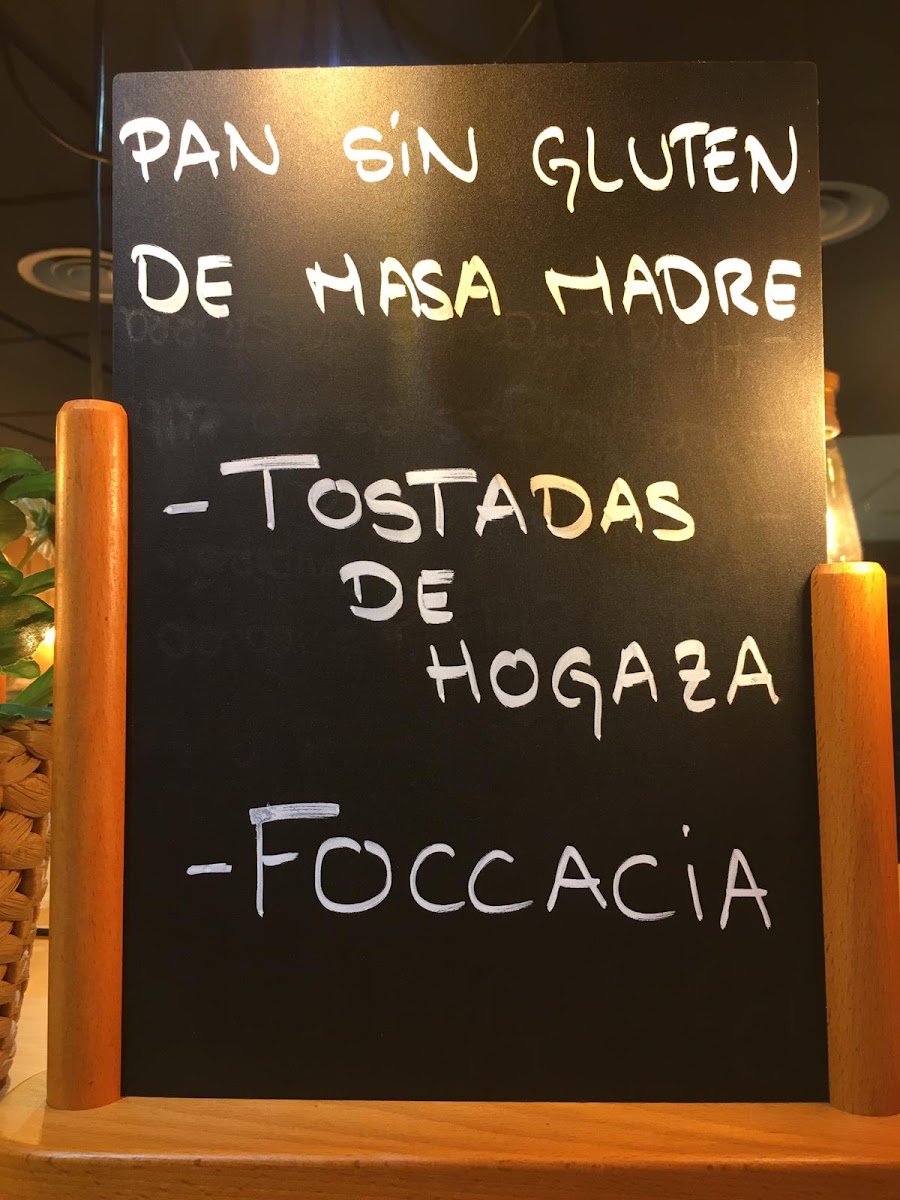 PAN SIN GLUTEN
DE MASA MADRE
- TOSTADAS
DE
HOGAZA
- FOCCACIA